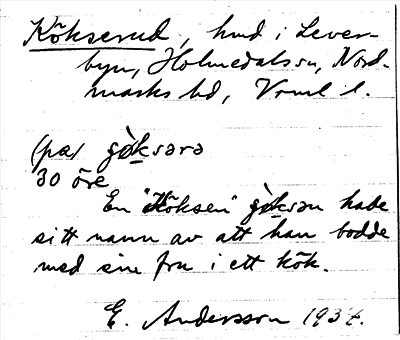 Kökserud, hmd i Lever-
byn, Holmedals sn, Nord-
marks hd, Vrml l.
(på) gö̀ksərə
30 öre
En "Köksen" gö̀ksən hade
sitt namn av att han bodde
med sin fru i ett kök.
E. Andersson 1934.